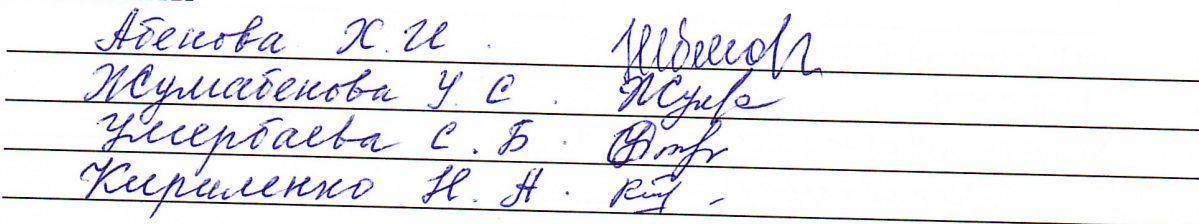 Абенова Х. И.
Жумабенова У. С.
Умербаева С. Б.
Кириленко Н. А.